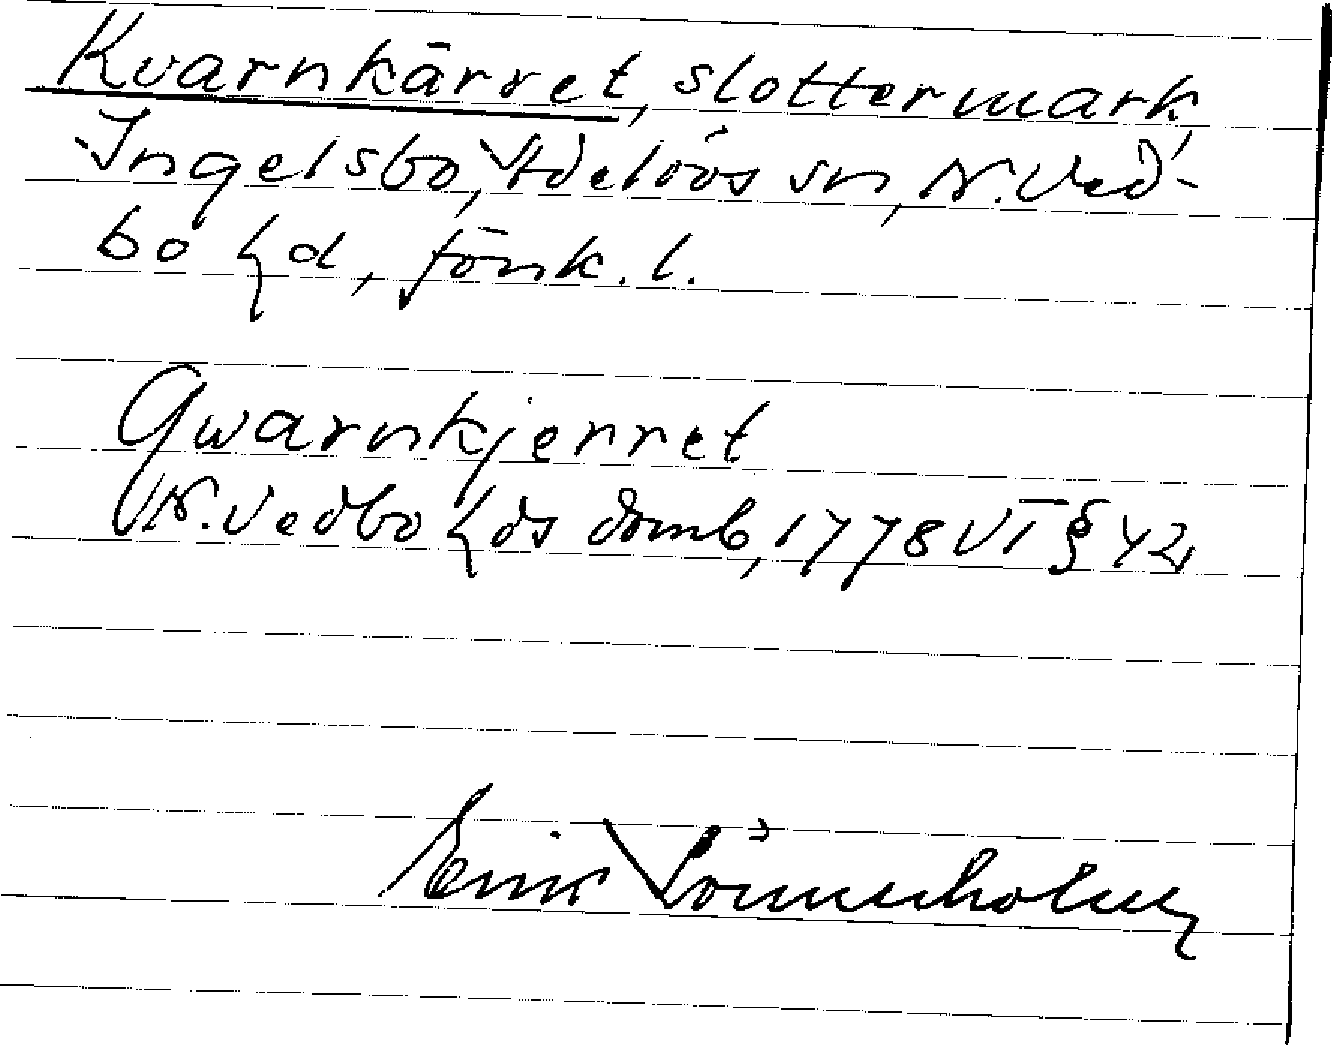 Kvarnkärret, slåttermark,
Ingelsbo, Adelövs sn, N. Ved-
bo hd, Jönk. l.
Qwarnkjerret
N. Vedbo hds domb, 1778 VT § 42,
Erik Lönnerholm